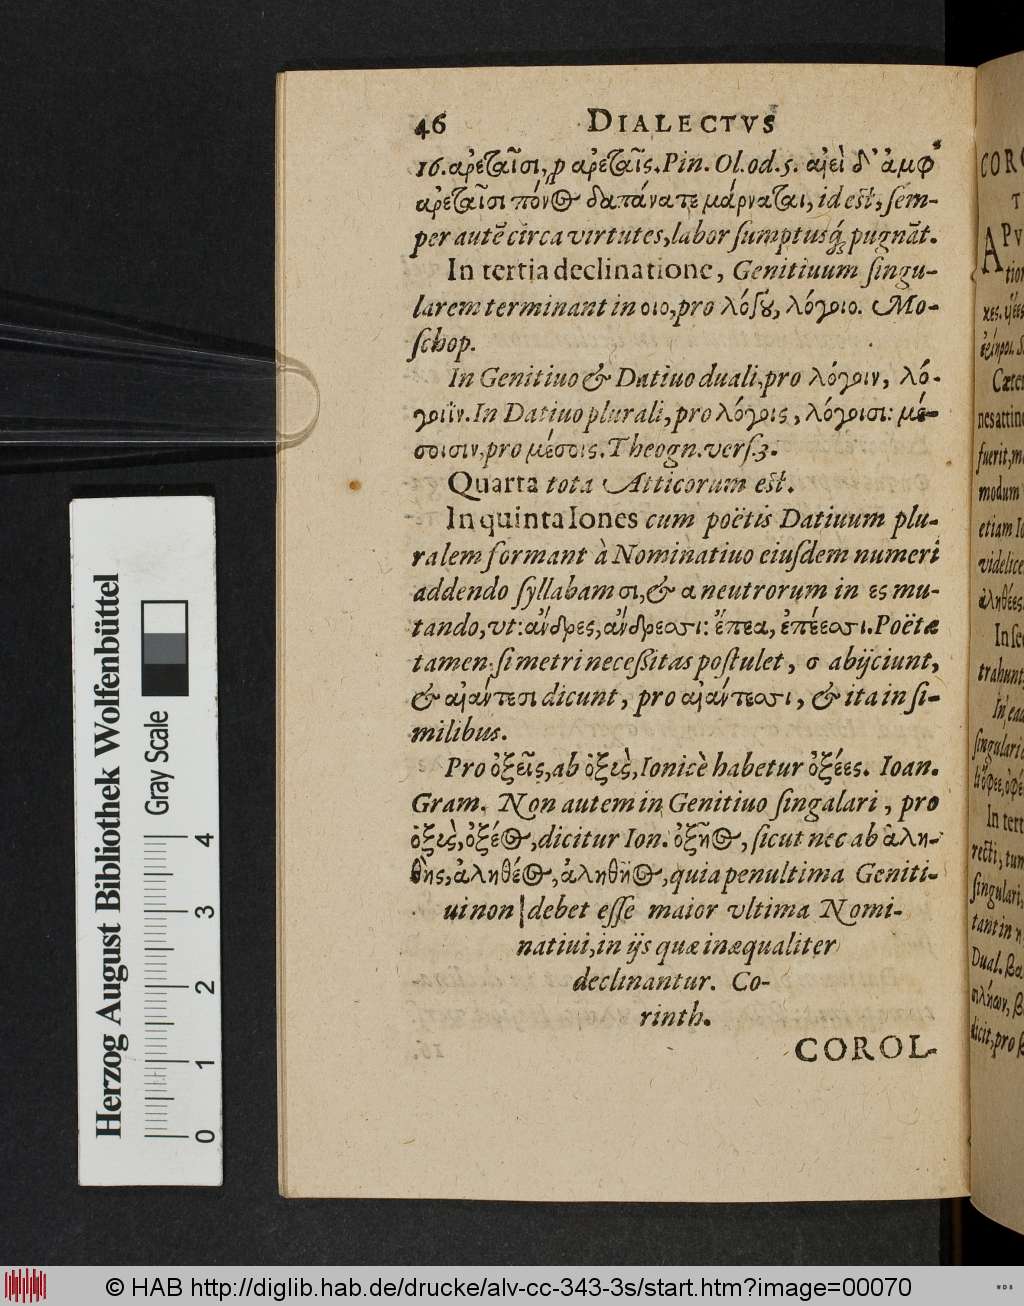 46 DIALECTVS
16. ἀρεταῖσι, p ἀρεταῖς. Pin. Ol. od. 5. αἰεὶ δ' ἀμφ'
ἀρεταῖσι πόνος δαπάνα τε μάρναται, id est, sem-
per autē circa virtutes, labor sumptusq; pugnāt.
In tertia declinatione, Genitiuum singu-
larem terminant in οιο, pro λόγου, λόγοιο. Mo-
schop.
In Genitiuo & Datiuo duali, pro λόγοιν, λό-
γοιϊν. In Datiuo plurali, pro λόγοις, λόγοισι: μέ-
σοισιν, pro μέσοις. Theogn. vers. 3.
Quarta tota Atticorum est.
In quinta Iones cum poëtis Datiuum plu-
ralem formant à Nominatiuo eiusdem numeri
addendo syllabam σι, & α neutrorum in ες mu-
tando, vt: ἄνδρες, ἄνδρεσσι: ἔπεα, ἐπέεσσι. Poëtæ
tamen, si metri necessitas postulet, σ abijciunt,
& αἰάντεσι dicunt, pro αἰάντεσσι, & ita in si-
milibus.
Pro ὀξεῖς, ab ὀξὺς, Ionicè habetur ὀξέες. Ioan.
Gram. Non autem in Genitiuo singalari, pro
ὀξὺς, ὀξέος, dicitur Ion. ὀξῆος, sicut nec ab ἀλη-
θὴς, ἀληθέος, ἀληθῆος, quia penultima Geniti-
ui non debet esse maior vltima Nomi-
natiui, in ijs quæ inæqualiter
declinantur. Co-
rinth.
COROL-
COR
T
A PV
tion
Cæter
nes attine
fuerit, m
modum
etiam I
videlice
ἀληθέες
In sec
trahunt
In ead
singulari
In tert
recti, tum
singulari,
tant in η
Dual. βα
σιλήων, β
dicit, pro β
Herzog August Bibliothek Wolfenbüttel
Gray Scale
0 1 2 3 4
© HAB http://diglib.hab.de/drucke/alv-cc-343-3s/start.htm?image=00070